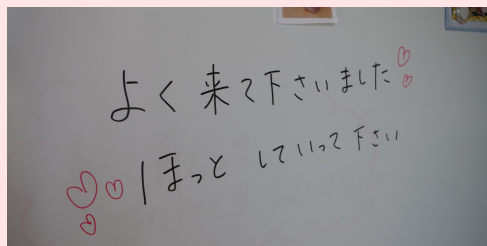 よく来て下さいました
ほっと していって下さい